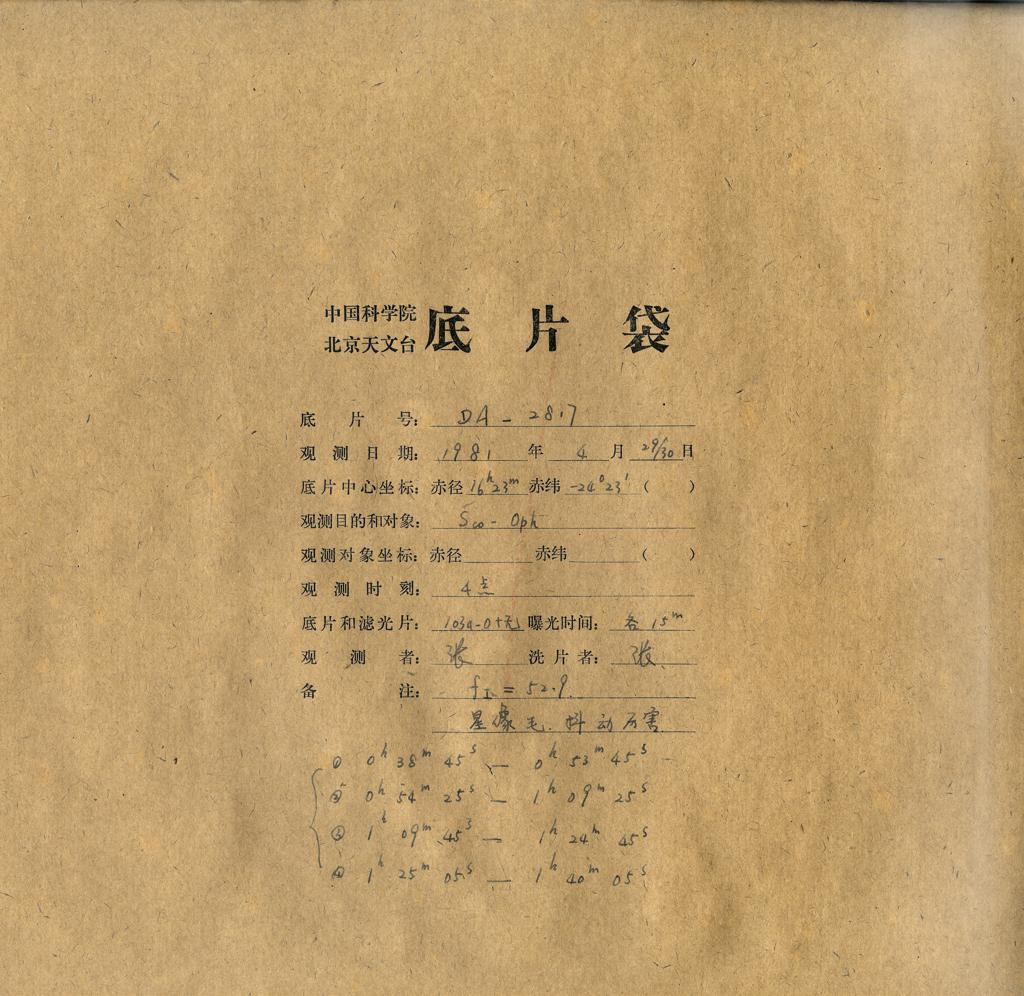 中国科学院
北京天文台
底片袋
底片号: DA-2817
观测日期: 1981年4月29/30日
底片中心坐标: 赤径 16h23m 赤纬 -24°23′ ( )
观测目的和对象: Sco-Oph
观测对象坐标: 赤径 赤纬 ( )
观测时刻: 4点
底片和滤光片: 103a-O+无 曝光时间: 各15m
观测者: 张 洗片者: 张
备注: fI=52.9.
星像毛.抖动厉害.
① 0h 38m 45s — 0h 53m 45s
② 0h 54m 25s — 1h 09m 25s
③ 1h 09m 45s — 1h 24m 45s
④ 1h 25m 05s — 1h 40m 05s